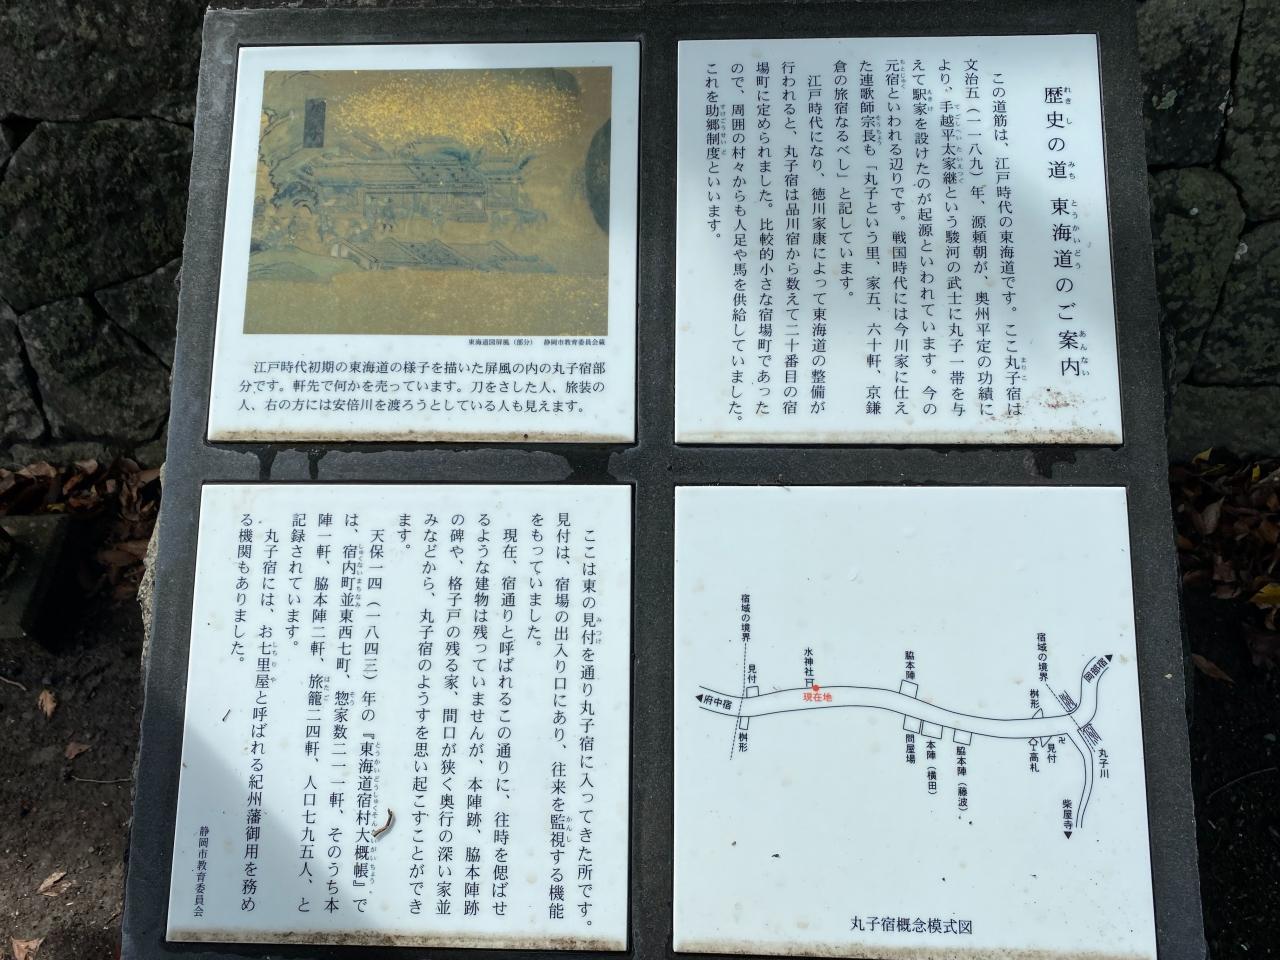 歴史の道 東海道のご案内
この道筋は、江戸時代の東海道です。ここ丸子宿は
文治五(一一八九)年、源頼朝が、奥州平定の功績に
より、手越平太家継という駿河の武士に丸子一帯を与
えて駅家を設けたのが起源といわれています。今の
元宿といわれる辺りです。戦国時代には今川家に仕え
た連歌師宗長も「丸子という里、家五、六十軒、京鎌
倉の旅宿なるべし」と記しています。
江戸時代になり、徳川家康によって東海道の整備が
行われると、丸子宿は品川宿から数えて二十番目の宿
場町に定められました。比較的小さな宿場町であった
ので、周囲の村々からも人足や馬を供給していました。
これを助郷制度といいます。
東海道図屏風(部分) 静岡市教育委員会蔵
江戸時代初期の東海道の様子を描いた屏風の内の丸子宿部
分です。軒先で何かを売っています。刀をさした人、旅装の
人、右の方には安倍川を渡ろうとしている人も見えます。
ここは東の見付を通り丸子宿に入ってきた所です。
見付は、宿場の出入り口にあり、往来を監視する機能
をもっていました。
現在、宿通りと呼ばれるこの通りに、往時を偲ばせ
るような建物は残っていませんが、本陣跡、脇本陣跡
の碑や、格子戸の残る家、間口が狭く奥行の深い家並
みなどから、丸子宿のようすを思い起こすことができ
ます。
天保一四(一八四三)年の『東海道宿村大概帳』で
は、宿内町並東西七町、惣家数二一一軒、そのうち本
陣一軒、脇本陣二軒、旅籠二四軒、人口七九五人、と
記録されています。
丸子宿には、お七里屋と呼ばれる紀州藩御用を務め
る機関もありました。
静岡市教育委員会
宿域の境界
見付
水神社
現在地
府中宿
桝形
脇本陣
問屋場
本陣(横田)
脇本陣(藤波)
宿域の境界
桝形
見付
高札
岡部宿
丸子川
柴屋寺
丸子宿概念模式図